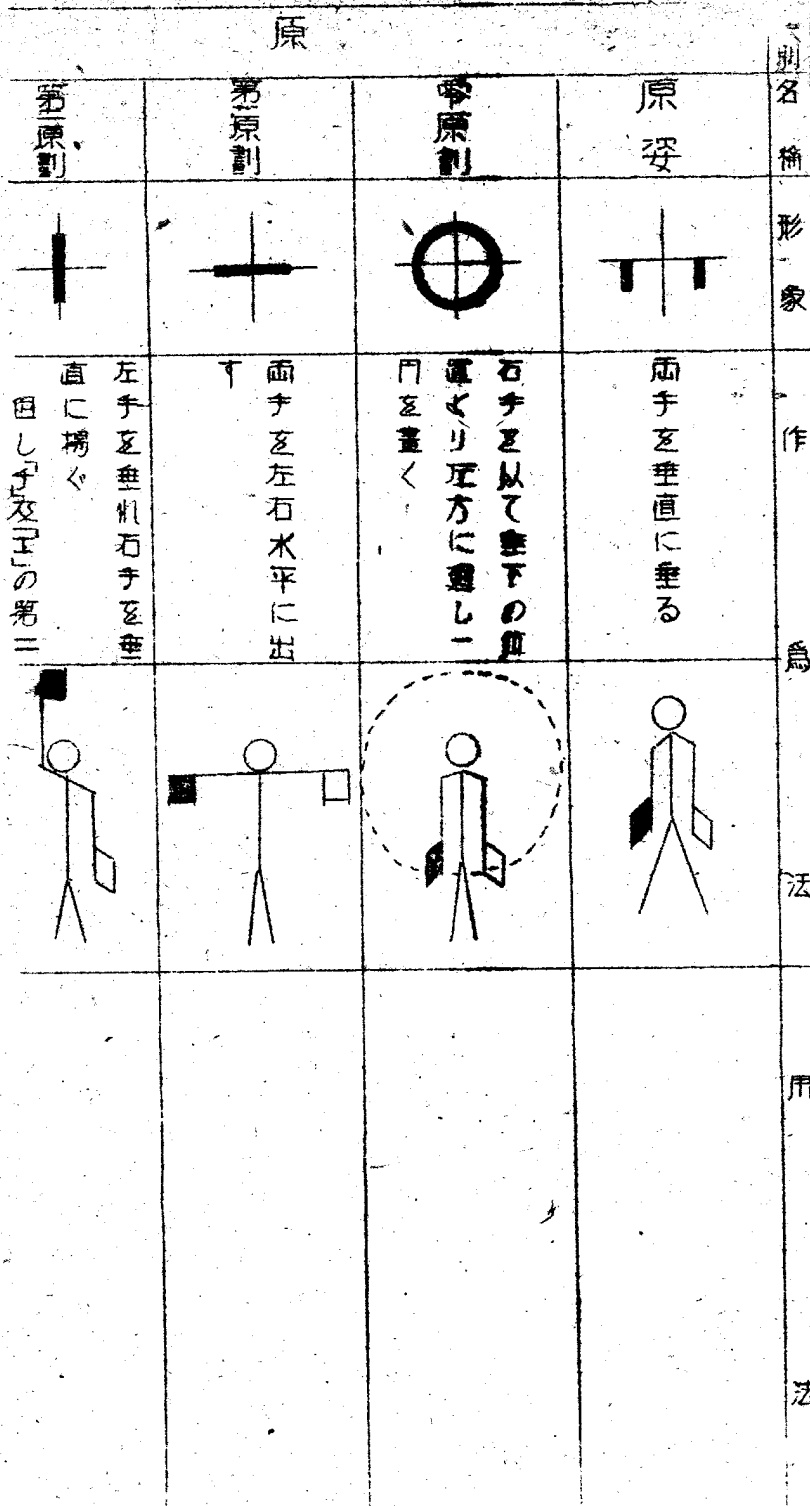 別
名稱
形象
作爲法
用法
原
原姿
両手を垂直に垂る
零原劃
右手を以て垂下の位
置より左方に通し一
円を畫く
第一原劃
両手を左右水平に出
す
第二原劃
左手を垂れ右手を垂
直に揚ぐ
但し「チ」及「エ」の第二